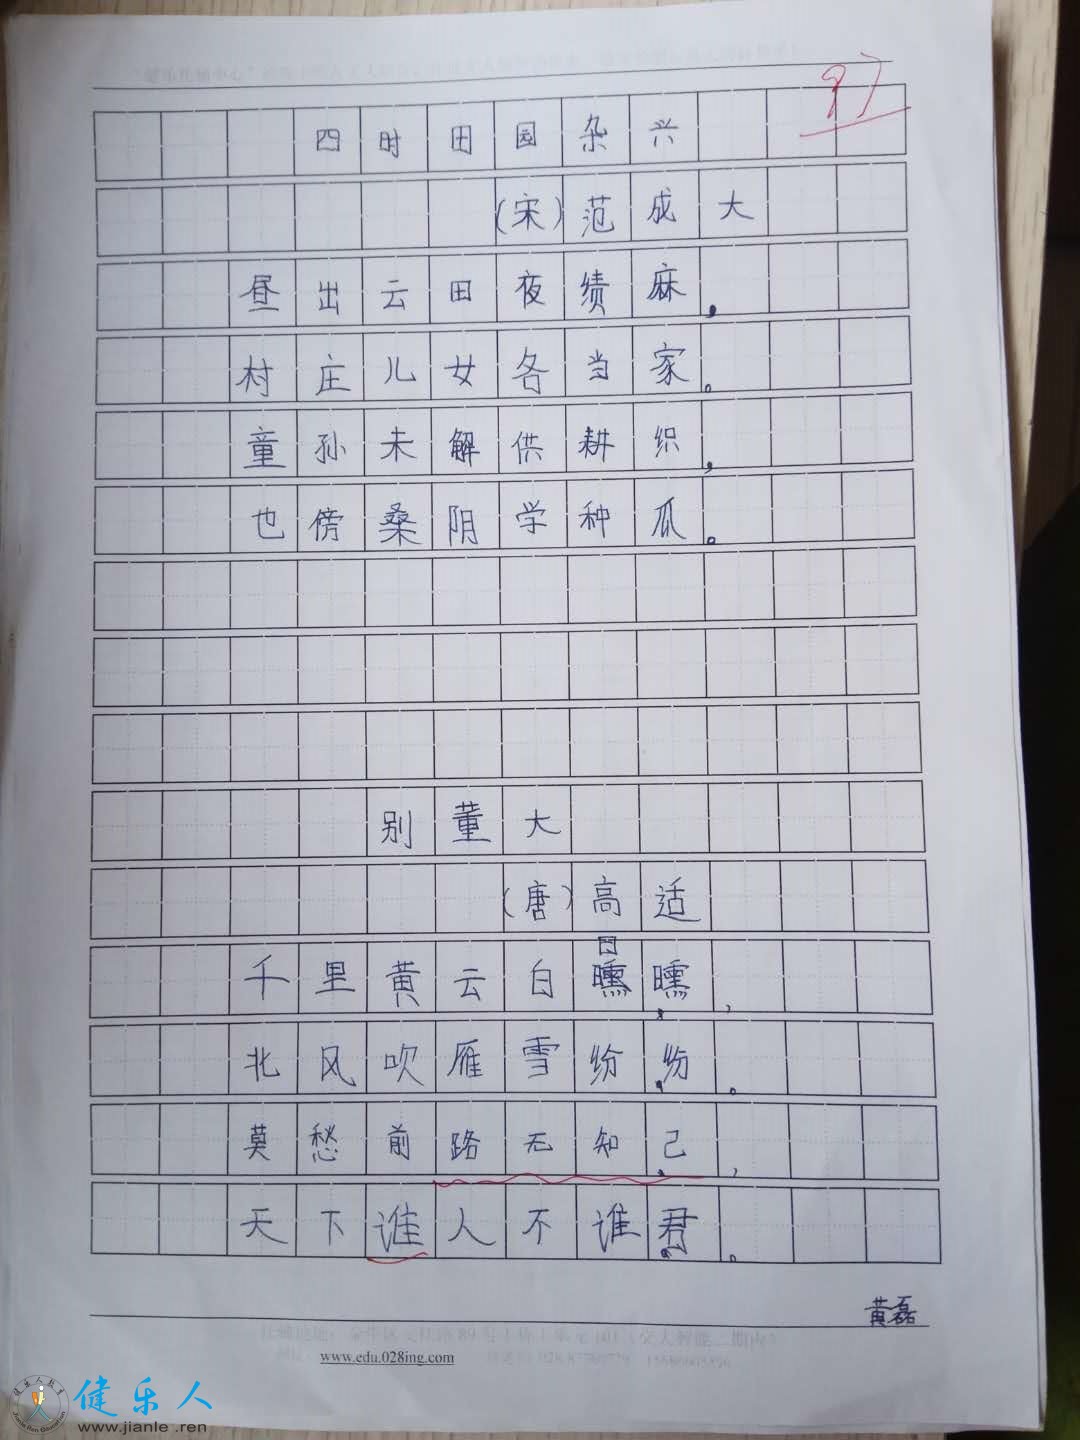 97
四时田园杂兴
(宋)范成大
昼出云田夜绩麻,
村庄儿女各当家。
童孙未解供耕织,
也傍桑阴学种瓜。
别董大
(唐)高适
千里黄云白曛曛,
北风吹雁雪纷纷。
莫愁前路无知己,
天下谁人不谁君。
黄磊
www.edu.028ing.com
健乐人
www.jianle.ren